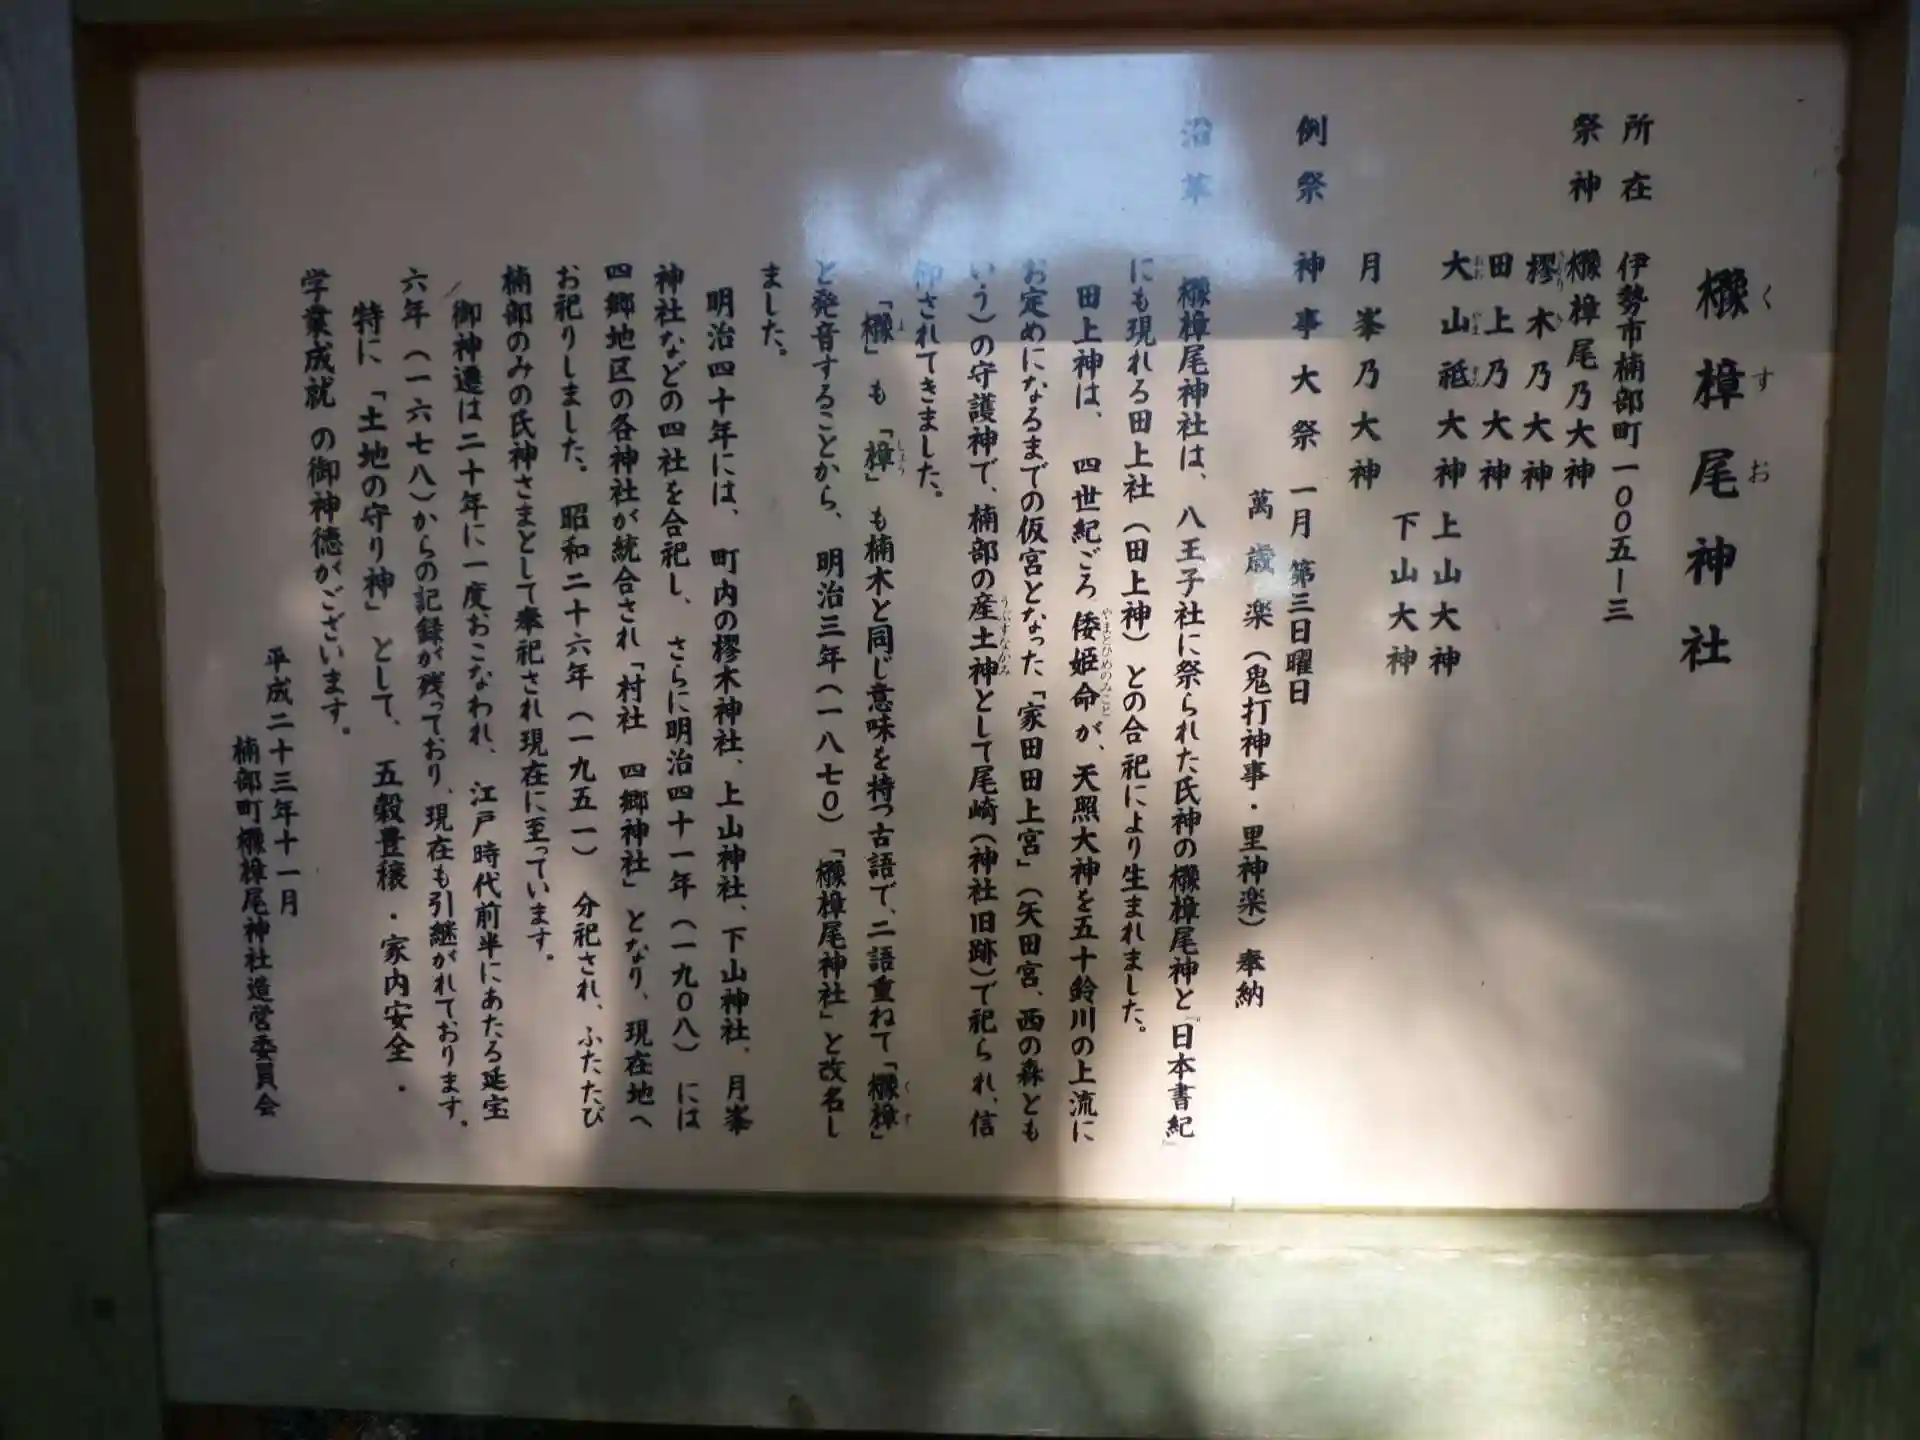 櫲樟尾神社
くすお
所在 伊勢市楠部町一〇〇五ー三
祭神 櫲樟尾乃大神
樛木乃大神
田上乃大神
大山祗大神 上山大神
おおやまずみ
下山大神
月峯乃大神
例祭 神事大祭 一月 第三日曜日
萬歳楽(鬼打神事・里神楽)奉納
沿革
櫲樟尾神社は、八王子社に祭られた氏神の櫲樟尾神と『日本書紀』
にも現れる田上社(田上神)との合祀により生まれました。
田上神は、四世紀ごろ倭姫命が、天照大神を五十鈴川の上流に
やまとひめのみこと
お定めになるまでの仮宮となった「家田田上宮」(矢田宮、西の森とも
いう)の守護神で、楠部の産土神として尾崎(神社旧跡)で祀られ、信
うじすながみ
仰されてきました。
「櫲」も「樟」も楠木と同じ意味を持つ古語で、二語重ねて「櫲樟」
よ しょう くす
と発音することから、明治三年(一八七〇)「櫲樟尾神社」と改名し
ました。
明治四十年には、町内の樛木神社、上山神社、下山神社、月峯
神社などの四社を合祀し、さらに明治四十一年(一九〇八)には
四郷地区の各神社が統合され「村社 四郷神社」となり、現在地へ
お祀りしました。昭和二十六年(一九五一)分祀され、ふたたび
楠部のみの氏神さまとして奉祀され現在に至っています。
御神遷は二十年に一度おこなわれ、江戸時代前半にあたる延宝
六年(一六七八)からの記録が残っており、現在も引継がれております。
特に「土地の守り神」として、五穀豊穣・家内安全・
学業成就の御神徳がございます。
平成二十三年十一月
楠部町櫲樟尾神社造営委員会